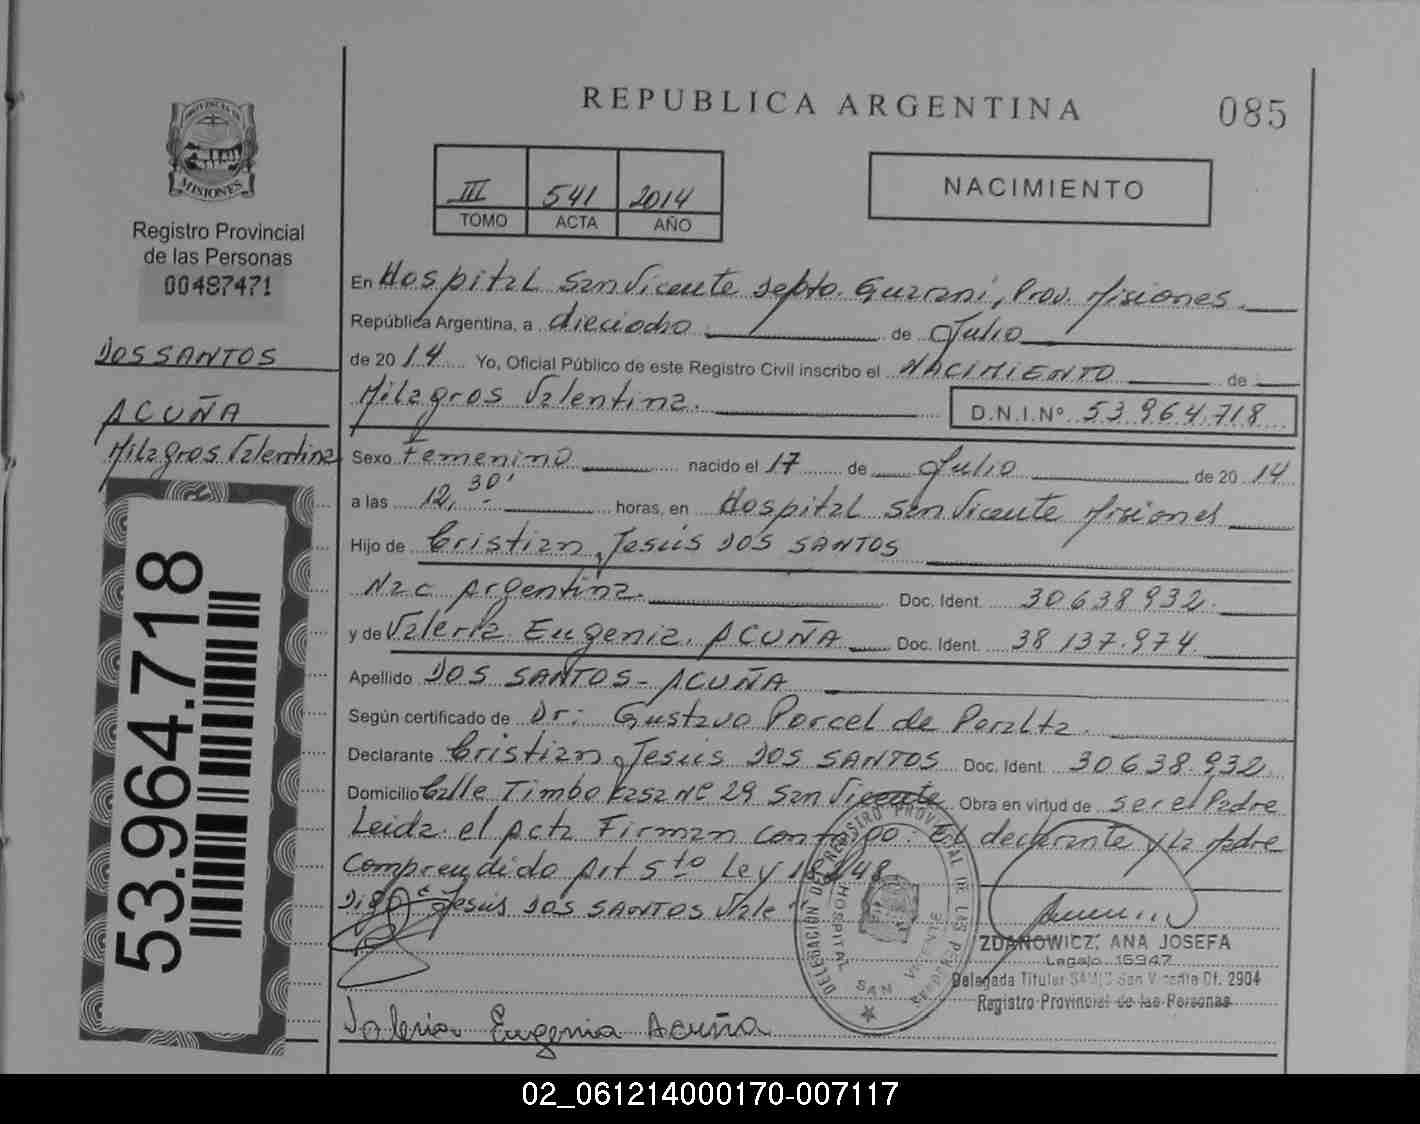 REPUBLICA ARGENTINA
085
PROVINCIA DE
MISIONES
Registro Provincial
de las Personas
00487471
DOS SANTOS
ACUÑA
Milagros Valentina
53.964.718
III 541 2014
TOMO ACTA AÑO
NACIMIENTO
En Hospital San Vicente Depto. Guarani, Prov. Misiones.
República Argentina, a dieciocho de Julio
de 2014 Yo, Oficial Público de este Registro Civil inscribo el NACIMIENTO de
Milagros Valentina. D.N.I.Nº 53.964.718
Sexo Femenino nacido el 17 de Julio de 2014
a las 12,30' horas, en Hospital San Vicente Misiones
Hijo de Cristian Jesús DOS SANTOS
Nac Argentina. Doc. Ident. 30638932.
y de Valeria Eugenia. ACUÑA Doc. Ident. 38137.974
Apellido DOS SANTOS - ACUÑA
Según certificado de Dr: Gustavo Porcel de Peralta.
Declarante Cristian Jesús DOS SANTOS Doc. Ident. 30638.932
Domicilio Calle Timbo Casa Nº 29 San Vicente Obra en virtud de ser el Padre
Leida el Acta Firman conmigo. El declarante y la Madre
Comprendido Art 5to Ley 18248
Digo: Jesús DOS SANTOS Vale
DELEGACIÓN DE REGISTRO PROVINCIAL DE LAS PERSONAS
HOSPITAL
SAN VICENTE
ZDANOWICZ, ANA JOSEFA
Legajo 15947
Delegada Titular SAMIC San Vicente Of. 2904
Registro Provincial de las Personas
Valeria Eugenia Acuña
02_061214000170-007117